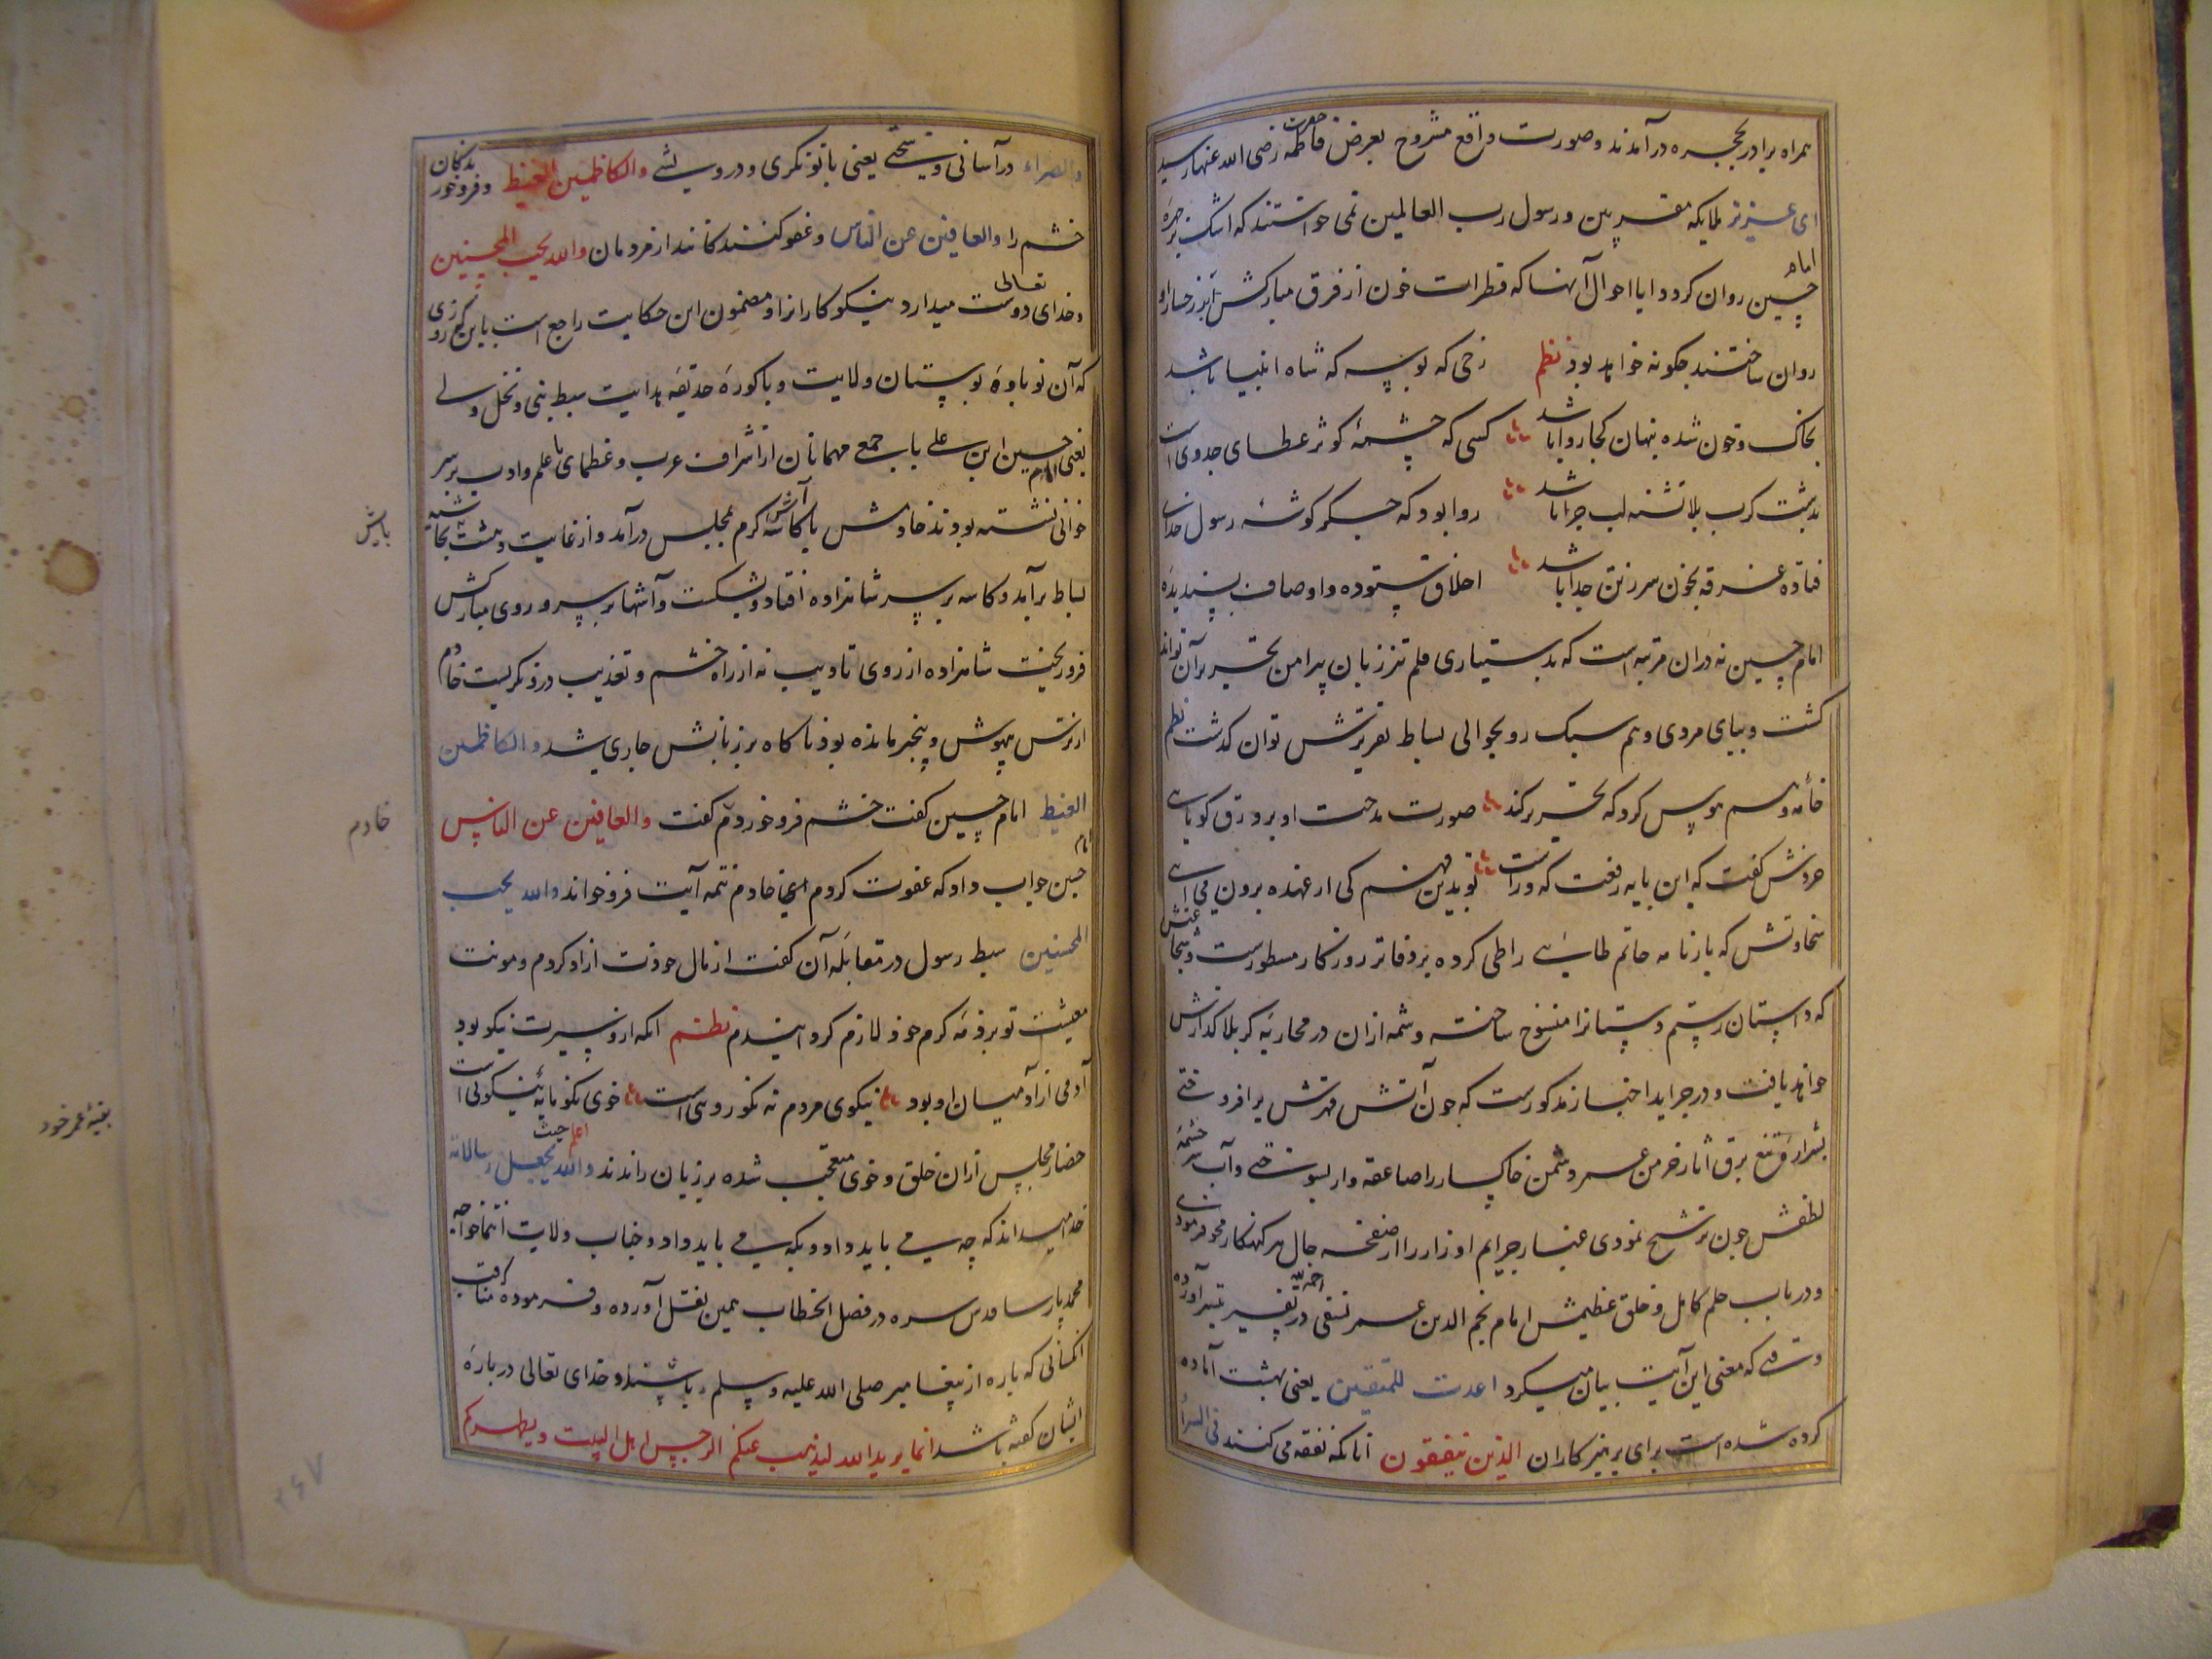 همراه برادر بحجره درآمدند و صورت واقع مشروح بعرض حضرت فاطمه رضی الله عنها رسید
ای عزیز ملایکه مقربین و رسول رب العالمین نمی خواستند که اشک بر چهره
امام حسین روان کردد ایا احوال آنها که قطرات خون از فرق مبارکش بر رخسار او
روان ساختند چکونه خواهد بود نظم رخی که بوسه که شاه انبیا باشد
بخاک و خون شده پنهان کجا روا باشد کسی که چشمهٔ کوثر عطای جد وی است
بدشت کرب بلا تشنه لب چرا باشد روا بود که جکر کوشهٔ رسول خدای
فتاده غرقه بخون سر ز تن جدا باشد اخلاق ستوده و اوصاف پسندیده
امام حسین نه دران مرتبه است که بدستیاری قلم تیز زبان پیرامن تحریر آن تواند
کشت و بپای مردی وهم سبک رو بحوالی بساط تقریرش توان کذشت نظم
خامه وهم هوس کرد که تحریر کند صورت مدحت او بر ورق کویایی
خردش کفت که این پایه رفعت که وراست تو بدین فهم کی از عهده برون می آیی
سخاوتش که بازنامه حاتم طایی را طی کرده بر دفاتر روزکار مسطورست و شجاعتش
که داستان رستم دستانرا منسوخ ساخته و شمه ازان در محاربه کربلا کذارش
خواهد یافت و در جراید اخبار مذکورست که چون آتش قهرش برافروختی
بشرار تیغ برق آثار خرمن عمر دشمن خاکسار را صاعقه وار بسوختی و آب سرچشمهٔ
لطفش چون ترشح نمودی غبار جرایم اوزار را از صفحه حال هر کنهکار محو فرمودی
و در باب حلم کامل و خلق عظیمش امام نجم الدین عمر نسفی رحمه الله در تفسیر تیسیر آورده
وقتی که معنی این آیت بیان میکرد اعدت للمتقین یعنی بهشت آماده
کرده شده است برای پرهیزکاران الذین ینفقون آنانکه نفقه می کنند فی السراء
والضراء در آسانی و سختی یعنی با توانکری و درویشی والکاظمین الغیظ و فرو خورندکان
خشم را والعافین عن الناس و عفو کنندکانند از مردمان والله یحب المحسنین
و خدای تعالی دوست میدارد نیکوکارانرا و مضمون این حکایت راجع است باین که روزی
که آن نوباوهٔ بوستان ولایت و باکورهٔ حدیقهٔ هدایت سبط نبی و نخل ولی
یعنی امام حسین ابن علی با جمعی مهمانان از اشراف عرب و عظمای با علم و ادب بر سر
خوانی نشسته بودند خادمش با کاسه آش کرم بمجلس درآمد و از غایت دهشت بحاشیه
بساط برآمد و کاسه بر سر شاهزاده افتاد و بشکست و آشها بر سر و روی مبارکش
فرو ریخت شاهزاده از روی تادیب نه از راه خشم و تعذیب درو نکریست خادم
از ترس بیهوش و بیخبر مانده بود ناکاه بر زبانش جاری شد والکاظمین
الغیظ امام حسین کفت خشم فرو خوردم کفت والعافین عن الناس
امام حسین جواب داد که عفوت کردم خادم تتمه آیت فرو خواند والله یحب
المحسنین سبط رسول در مقابله آن کفت از مال خودت ازاد کردم و مونت
معیشت تو بر ذمه کرم خود لازم کردانیدم نظم انکه ازو سیرت نیکو بود
آدمی از آدمیان او بود نیکوی مردم نه نکو رویی است خوی نکو مایهٔ نیکویی است
حضار مجلس ازان خلق و خوی متعجب شده بر زبان راندند والله اعلم حیث یجعل رسالاته
خدا میداند که چه می باید داد و بکه می باید داد و جناب ولایت انتما خواجه
محمد پارسا قدس سره در فصل الخطاب همین نقل آورده و فرموده مناقب
آنکسانی که پاره از پیغامبر صلی الله علیه و سلم باشند و خدای تعالی درباره
ایشان کفته باشد انما یرید الله لیذهب عنکم الرجس اهل البیت و یطهرکم
پایش
خادم
بقیهٔ عمر خود
۲۶۷